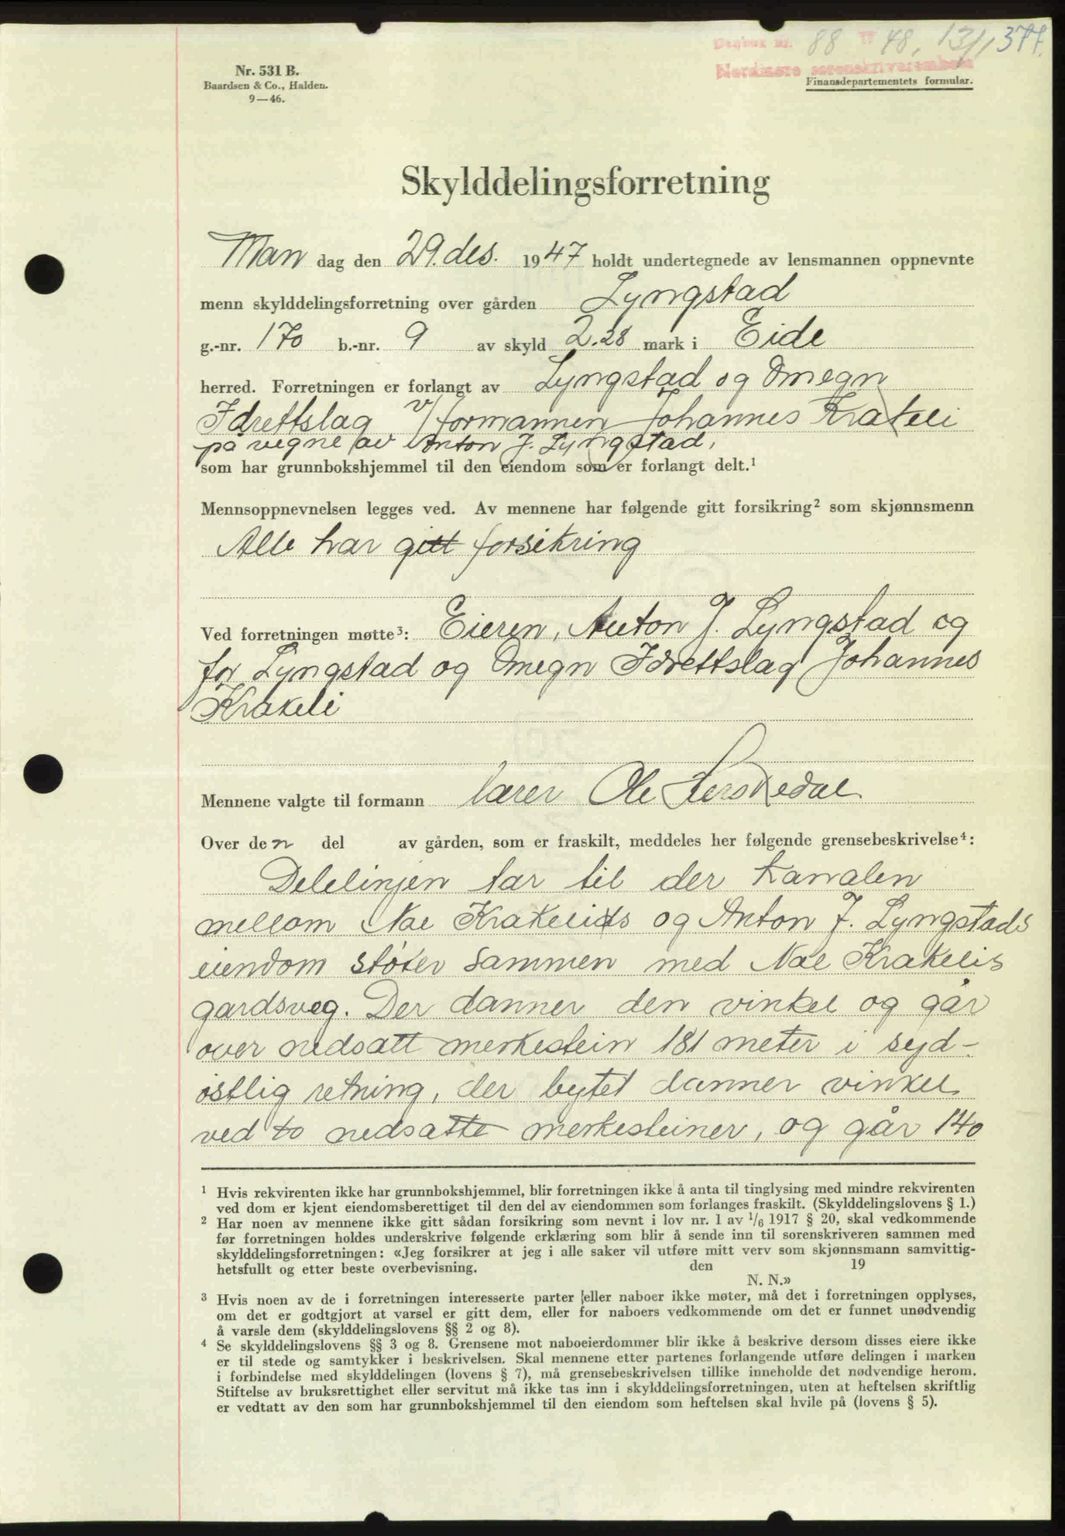 Dagbok nr. 88 19 48, 13/1 377.
Nordmøre sorenskriverembete
Nr. 531 B.
Baardsen & Co., Halden.
9—46.
Finansdepartementets formular.
Skylddelingsforretning
Man dag den 29. des. 1947 holdt undertegnede av lensmannen oppnevnte
menn skylddelingsforretning over gården Lyngstad
g.-nr. 170 b.-nr. 9 av skyld 2.28 mark i Eide
herred. Forretningen er forlangt av Lyngstad og Omegn
Idrettslag v/ formannen Johannes Krakeli
på vegne av Anton J. Lyngstad,
som har grunnbokshjemmel til den eiendom som er forlangt delt.¹
Mennsoppnevnelsen legges ved. Av mennene har følgende gitt forsikring² som skjønnsmenn
Alle har gitt forsikring
Ved forretningen møtte³: Eieren, Anton J. Lyngstad og
for Lyngstad og Omegn Idrettslag Johannes
Krakeli
Mennene valgte til formann lærer Ole Herskedal
Over den del av gården, som er fraskilt, meddeles her følgende grensebeskrivelse⁴:
Delelinjen tar til der kanalen
mellom Nae Krakelids og Anton J. Lyngstads
eiendom støter sammen med Nae Krakelis
gardsveg. Der danner den vinkel og går
over nedsatt merkestein 181 meter i syd-
østlig retning, der bytet danner vinkel
ved to nedsatte merkesteiner, og går 140
¹ Hvis rekvirenten ikke har grunnbokshjemmel, blir forretningen ikke å anta til tinglysing med mindre rekvirenten
ved dom er kjent eiendomsberettiget til den del av eiendommen som forlanges fraskilt. (Skylddelingslovens § 1.)
² Har noen av mennene ikke gitt sådan forsikring som nevnt i lov nr. 1 av 1/6 1917 § 20, skal vedkommende
før forretningen holdes underskrive følgende erklæring som blir å sende inn til sorenskriveren sammen med
skylddelingsforretningen: «Jeg forsikrer at jeg i alle saker vil utføre mitt verv som skjønnsmann samvittig-
hetsfullt og etter beste overbevisning. den 19
N. N.»
³ Hvis noen av de i forretningen interesserte parter eller naboer ikke møter, må det i forretningen opplyses,
om det er godtgjort at varsel er gitt dem, eller for naboers vedkommende om det er funnet unødvendig
å varsle dem (skylddelingslovens §§ 2 og 8).
⁴ Se skylddelingslovens §§ 3 og 8. Grensene mot naboeierdommer blir ikke å beskrive dersom disses eiere ikke
er til stede og samtykker i beskrivelsen. Skal mennene etter partenes forlangende utføre delingen i marken
i forbindelse med skylddelingen (lovens § 7), må grensebeskrivelsen tillike inneholde det nødvendige herom.
Stiftelse av bruksrettighet eller servitut må ikke tas inn i skylddelingsforretningen, uten at heftelsen skriftlig
er vedtatt av den som har grunnbokshjemmel til den eiendom som heftelsen skal hvile på (lovens § 5).